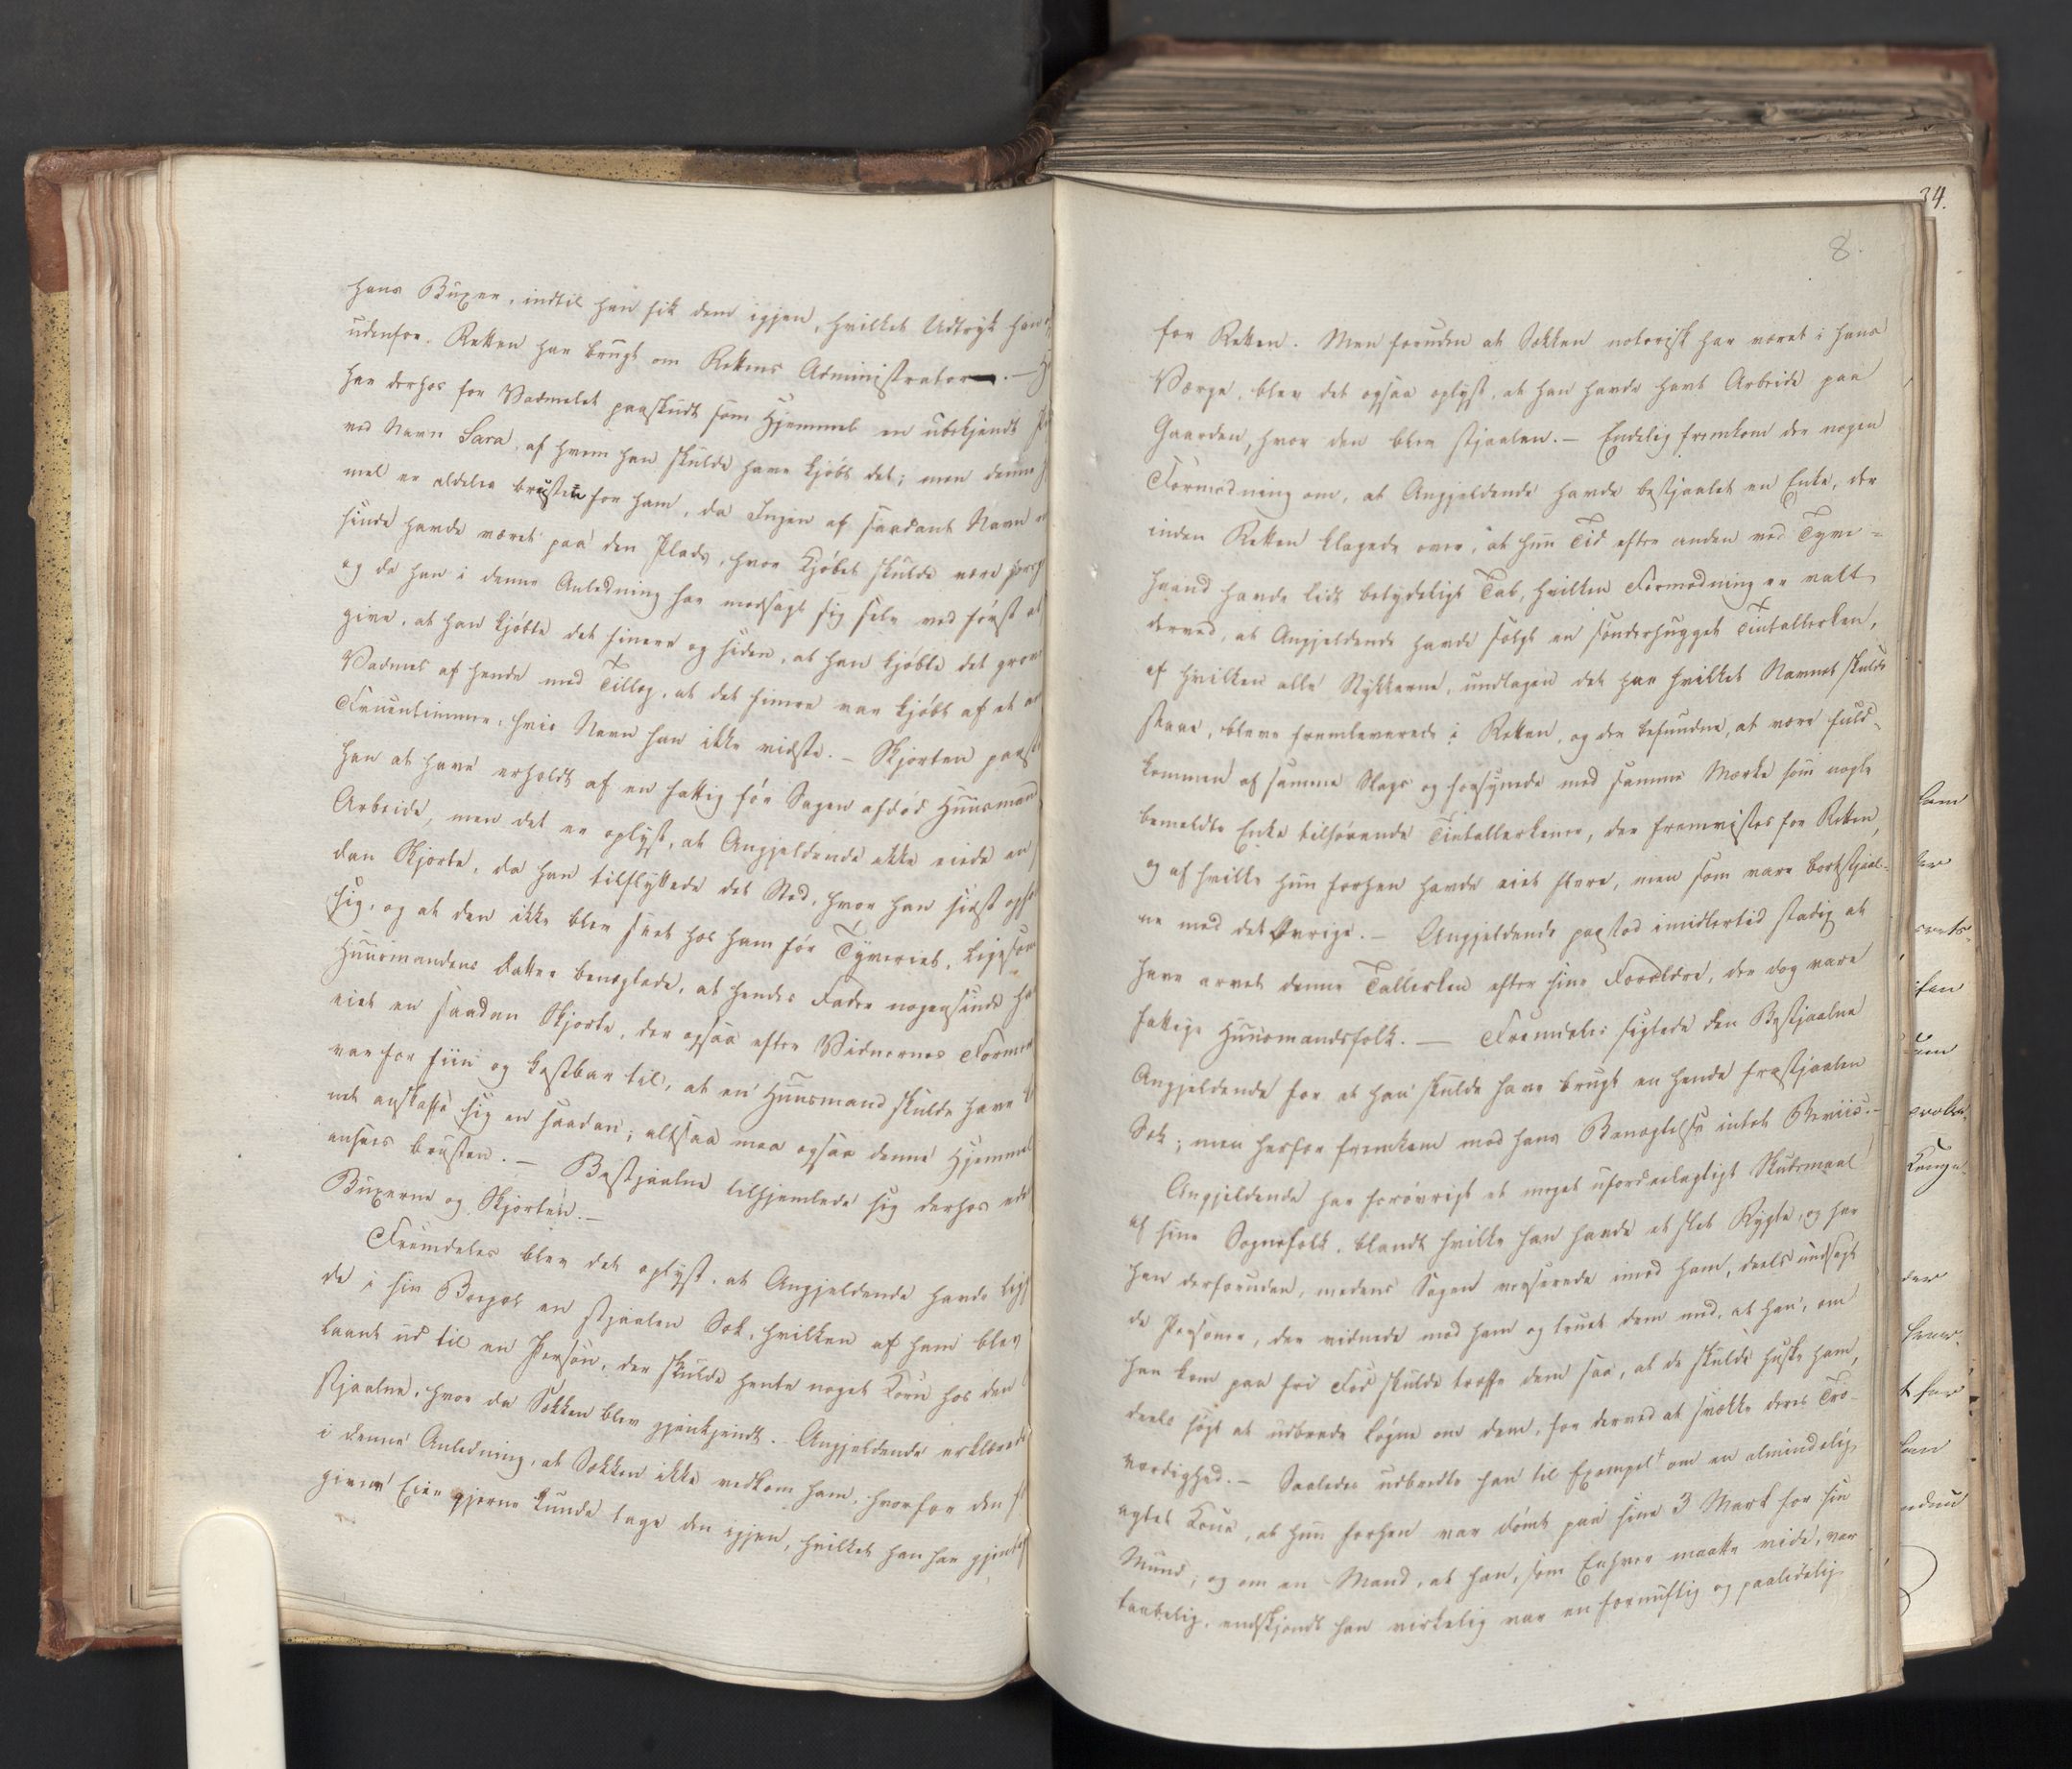 hans Buxer, indtil han fik dem igjen, hvilket Udtryk han
udenfor Retten har brugt om Rettens Administrator. —
har derhos for Vadmelet paaskudt som Hjemmel en ubekjendt
ved Navn Sara, af hvem han skulde have kjøbt det; men denne
mel er aldeles brusten for ham, da Ingen af saadant Navn
sinde havde været paa den Plads, hvor Kjøbet skulde være
og da han i denne Anledning har modsagt sig selv ved først at
give, at han kjøbte det finere og siden, at han kjøbte det
Vadmel af hende med Tillæg, at det finere var kjøbt af et
Fruentimmer, hvis Navn han ikke vidste. — Skjorten
han at have erholdt af en fattig før Sagen afdød Huusmand
Arbeide, men det er oplyst, at Angjeldende ikke eiede en
dan Skjorte, da han tilflyttede det Sted, hvor han sidst
sig, og at den ikke blev seet hos ham før Tyveriet, ligesom
Huusmandens Datter benegtede, at hendes Fader nogensinde
eiet en saadan Skjorte, der ogsaa efter Vidnernes
var for fiin og kostbar til, at en Huusmand skulde have
net anskaffe sig en saadan; altsaa maa ogsaa denne Hjemmel
ansees brusten. — Bestjaalne tilhjemlede sig derhos
Buxerne og Skjorten. —
Fremdeles blev det oplyst, at Angjeldende havde
de i sin Bopæl en stjaalen Sæk, hvilken af ham blev
laant ud til en Person, der skulde hente noget Korn hos den
stjaalne, hvor da Sækken blev gjenkjendt. Angjeldende erklærede
i denne Anledning, at Sækken ikke vedkom ham, hvorfor den
givne Eier gjerne kunde tage den igjen, hvilket han har
34.
8.
for Retten. Men foruden at Sækken notorisk har været i hans
Værge, blev det ogsaa oplyst, at han havde havt Arbeide paa
Gaarden, hvor den blev stjaalen. — Endelig fremkom der nogen
Formodning om, at Angjeldende havde bestjaalet en Enke, der
inden Retten klagede over, at hun Tid efter anden ved Tyve-
haand havde lidt betydeligt Tab, hvilken Formodning er vakt
derved, at Angjeldende havde solgt en sønderhugget Tintallerken,
af hvilken alle Stykkerne, undtagen det paa hvilket Navnet skulde
staae, bleve fremleverede i Retten, og der befundne, at være fuld-
kommen af samme Slags og forsynede med samme Mærke som nogle
bemeldte Enke tilhørende Tintallerkener, der fremvistes for Retten,
og af hvilke hun forhen havde eiet flere, men som vare bortstjaal-
ne med det Øvrige. — Angjeldende paastod imidlertid stadig at
have arvet denne Tallerken efter sine Forældre, der dog vare
fattige Huusmandsfolk. — Fremdeles sigtede den Bestjaalne
Angjeldende for at han skulde have brugt en hende frastjaalen
Sæk; men herfor fremkom mod hans Benægtelse intet Beviis. —
Angjeldende har forøvrigt et meget ufordeelagtigt Skudsmaal
af sine Sognefolk, blandt hvilke han havde et slet Rygte, og har
han derforuden, medens Sagen verserede imod ham, deels undsagt
de Personer, der vidnede mod ham og truet dem med, at han, om
han kom paa fri Fod skulde træffe dem saa, at de skulde huske ham,
deels søgt at udbrede Løgne om dem, for derved at svække deres Tro-
værdighed. — Saaledes udbredte han til Exempel om en almindelig
agtet Kone, at hun forhen var dømt paa sine 3 Mark for sin
Mund; og om en Mand, at han, som Enhver maatte vide, var
taabelig, endskjøndt han virkelig var en fornuftig og paalidelig